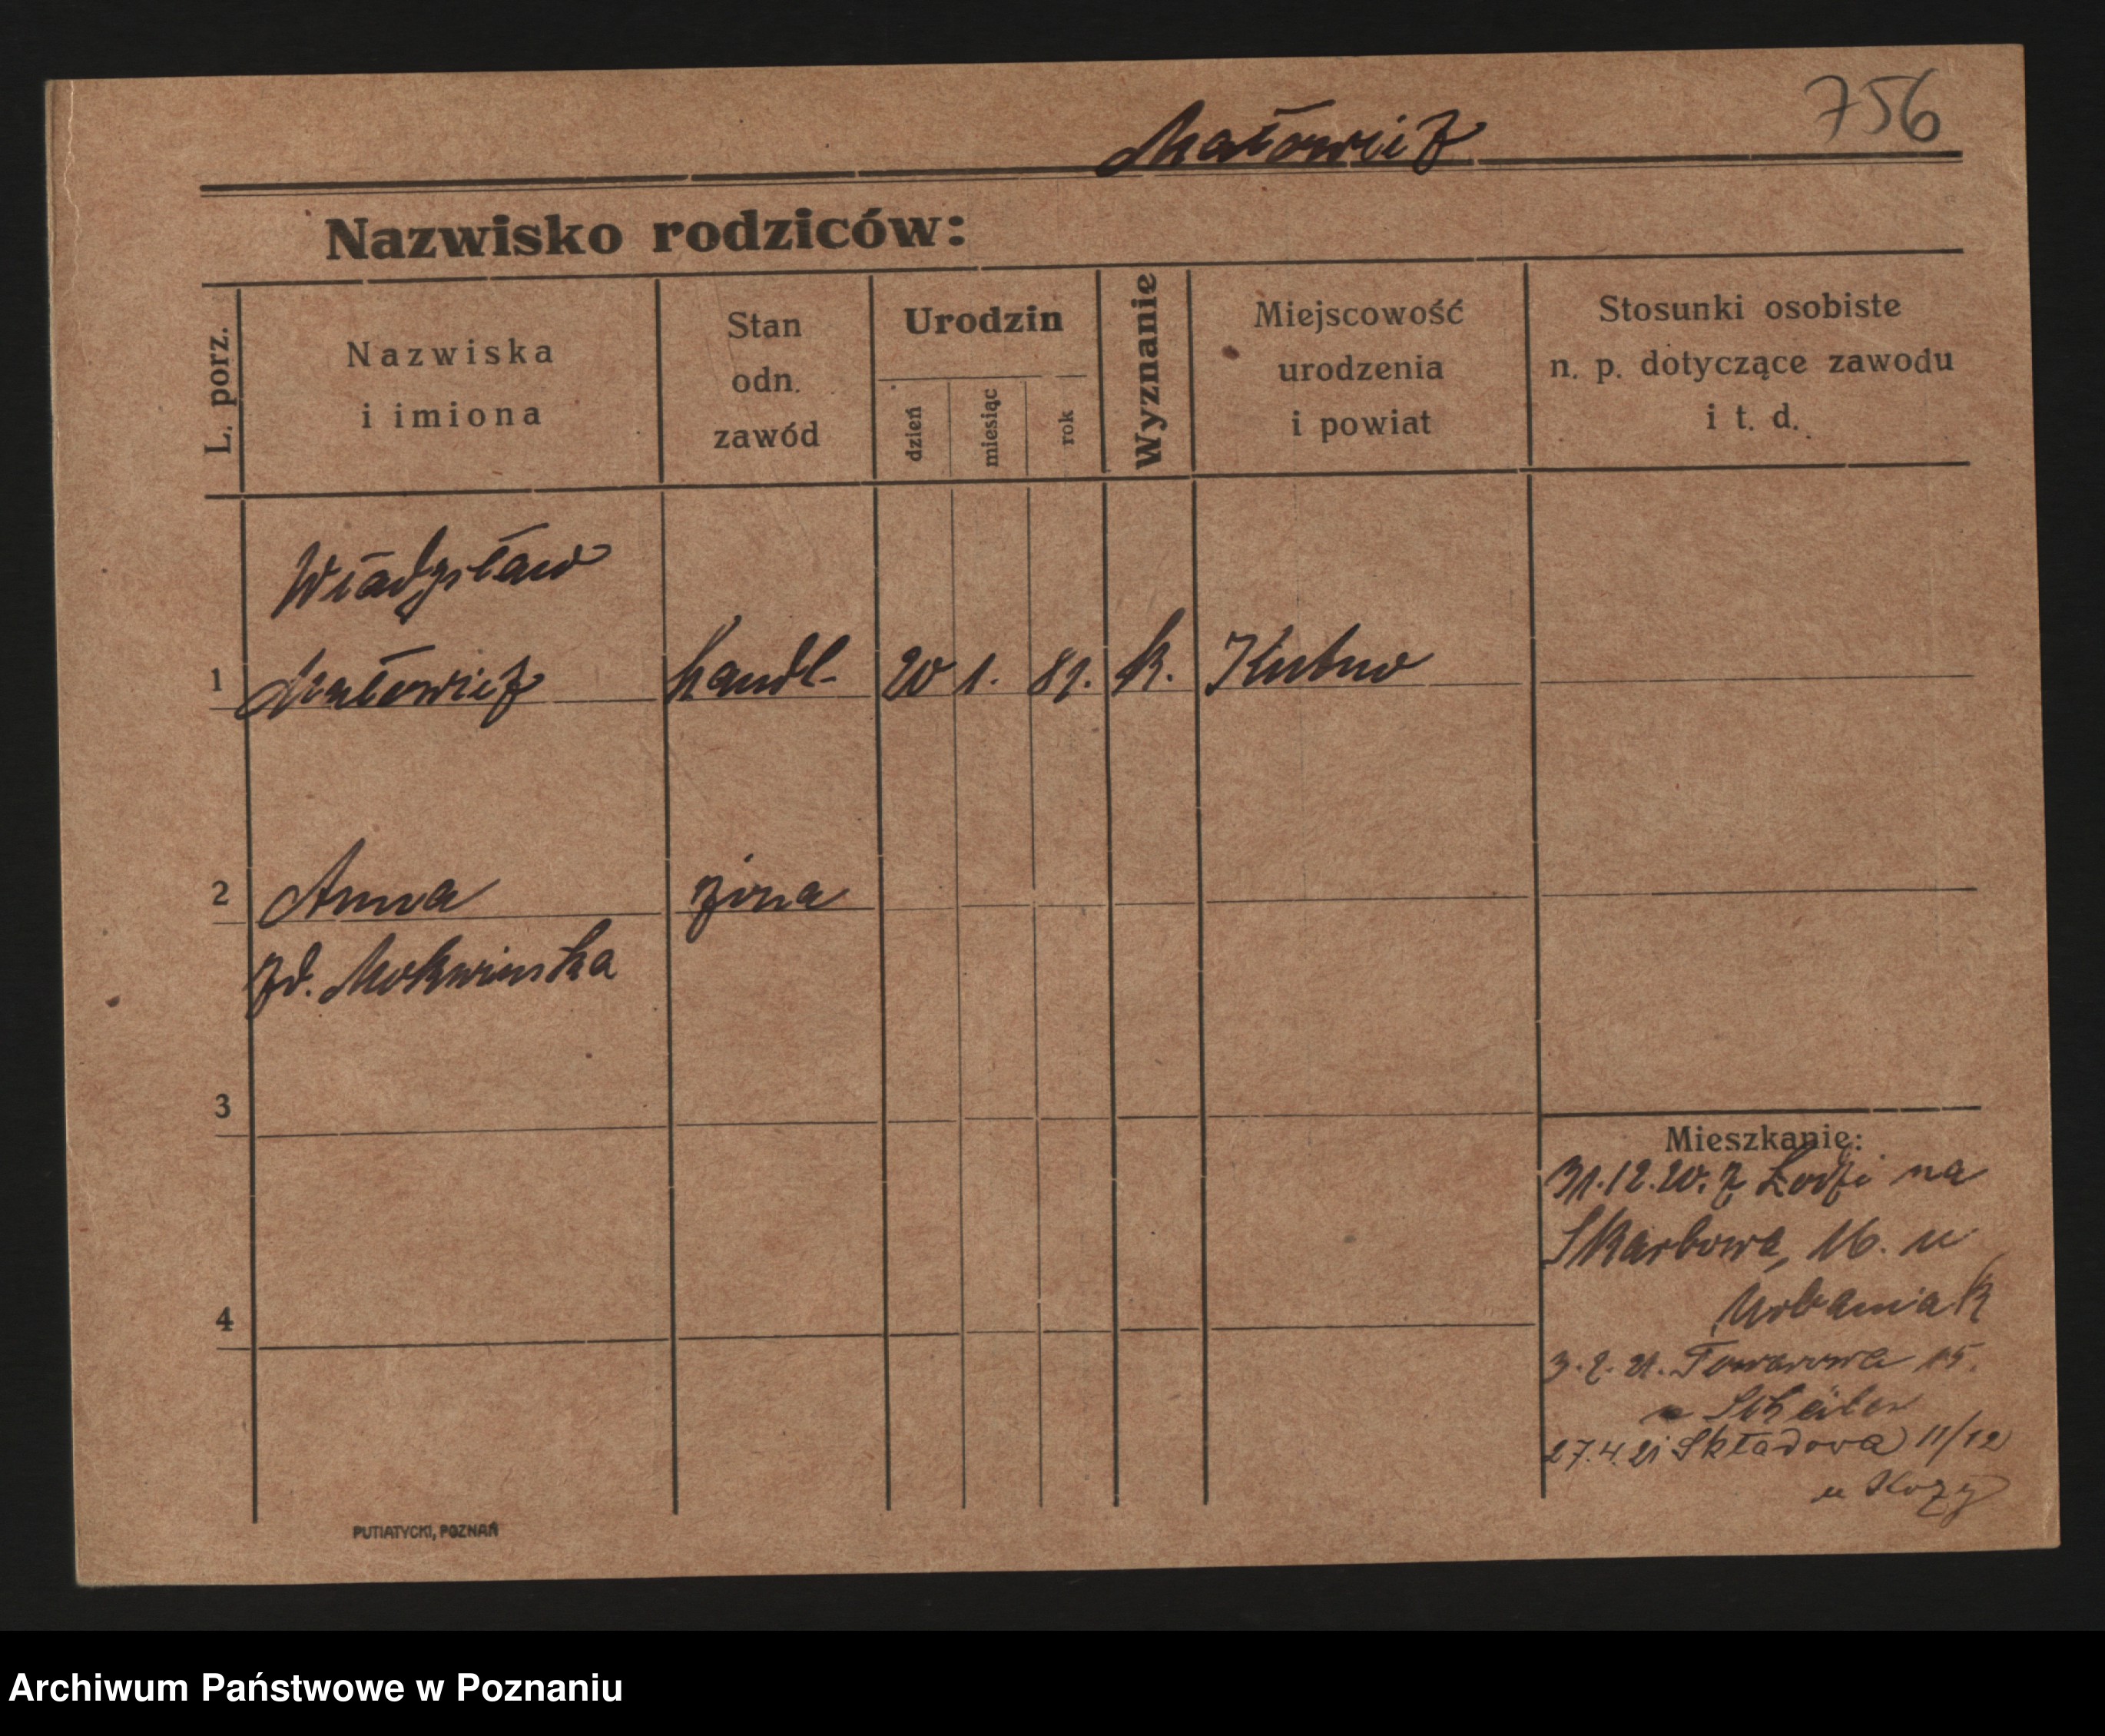 756
Matowicz
Nazwisko rodziców:
L. porz.
Nazwiska
i imiona
Stan
odn.
zawód
Urodzin
dzień
miesiąc
rok
Wyznanie
Miejscowość
urodzenia
i powiat
Stosunki osobiste
n. p. dotyczące zawodu
i t. d.
Władysław
1 Matowicz handl. 20 1. 81. k. Kutno
2 Anna żona
zd.
3
4
Mieszkanie:
31.12.20. z Łodzi na
Skarbową 16. u
Urbaniak
3.2.21. Towarowa 15.
u
27.4.21 Składowa 11/12
u Kozy
PUTIATYCKI, POZNAŃ
Archiwum Państwowe w Poznaniu